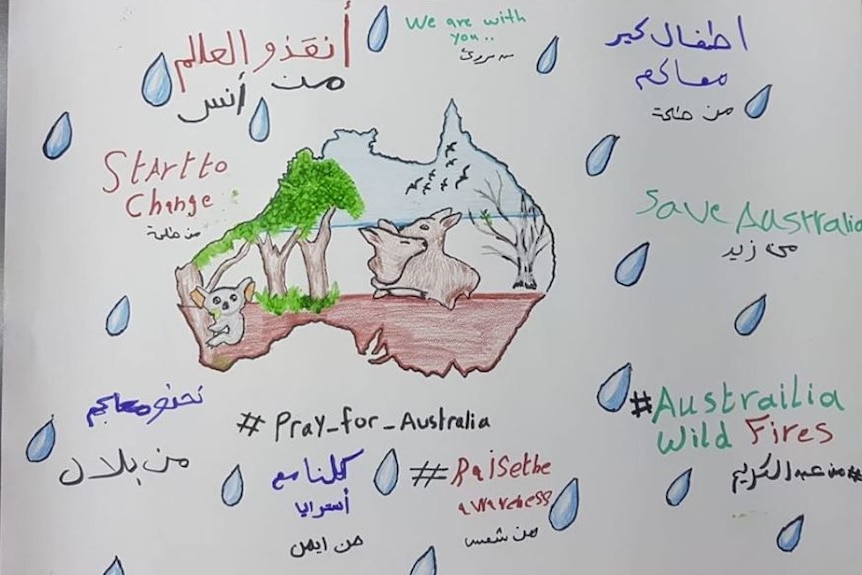 أنقذو العالم
من أنس
We are with
you..
اطفال كير
معاكم
من طلحة
Start to
Change
من طلحة
Save Australia
من زيد
نحنو معاجم
من بلال
# Pray_for_Australia
كلنا مع
أستراليا
من ايهن
# Raisethe
awareness
من شمس
#Austrailia
Wild Fires
#من عبد الكريم